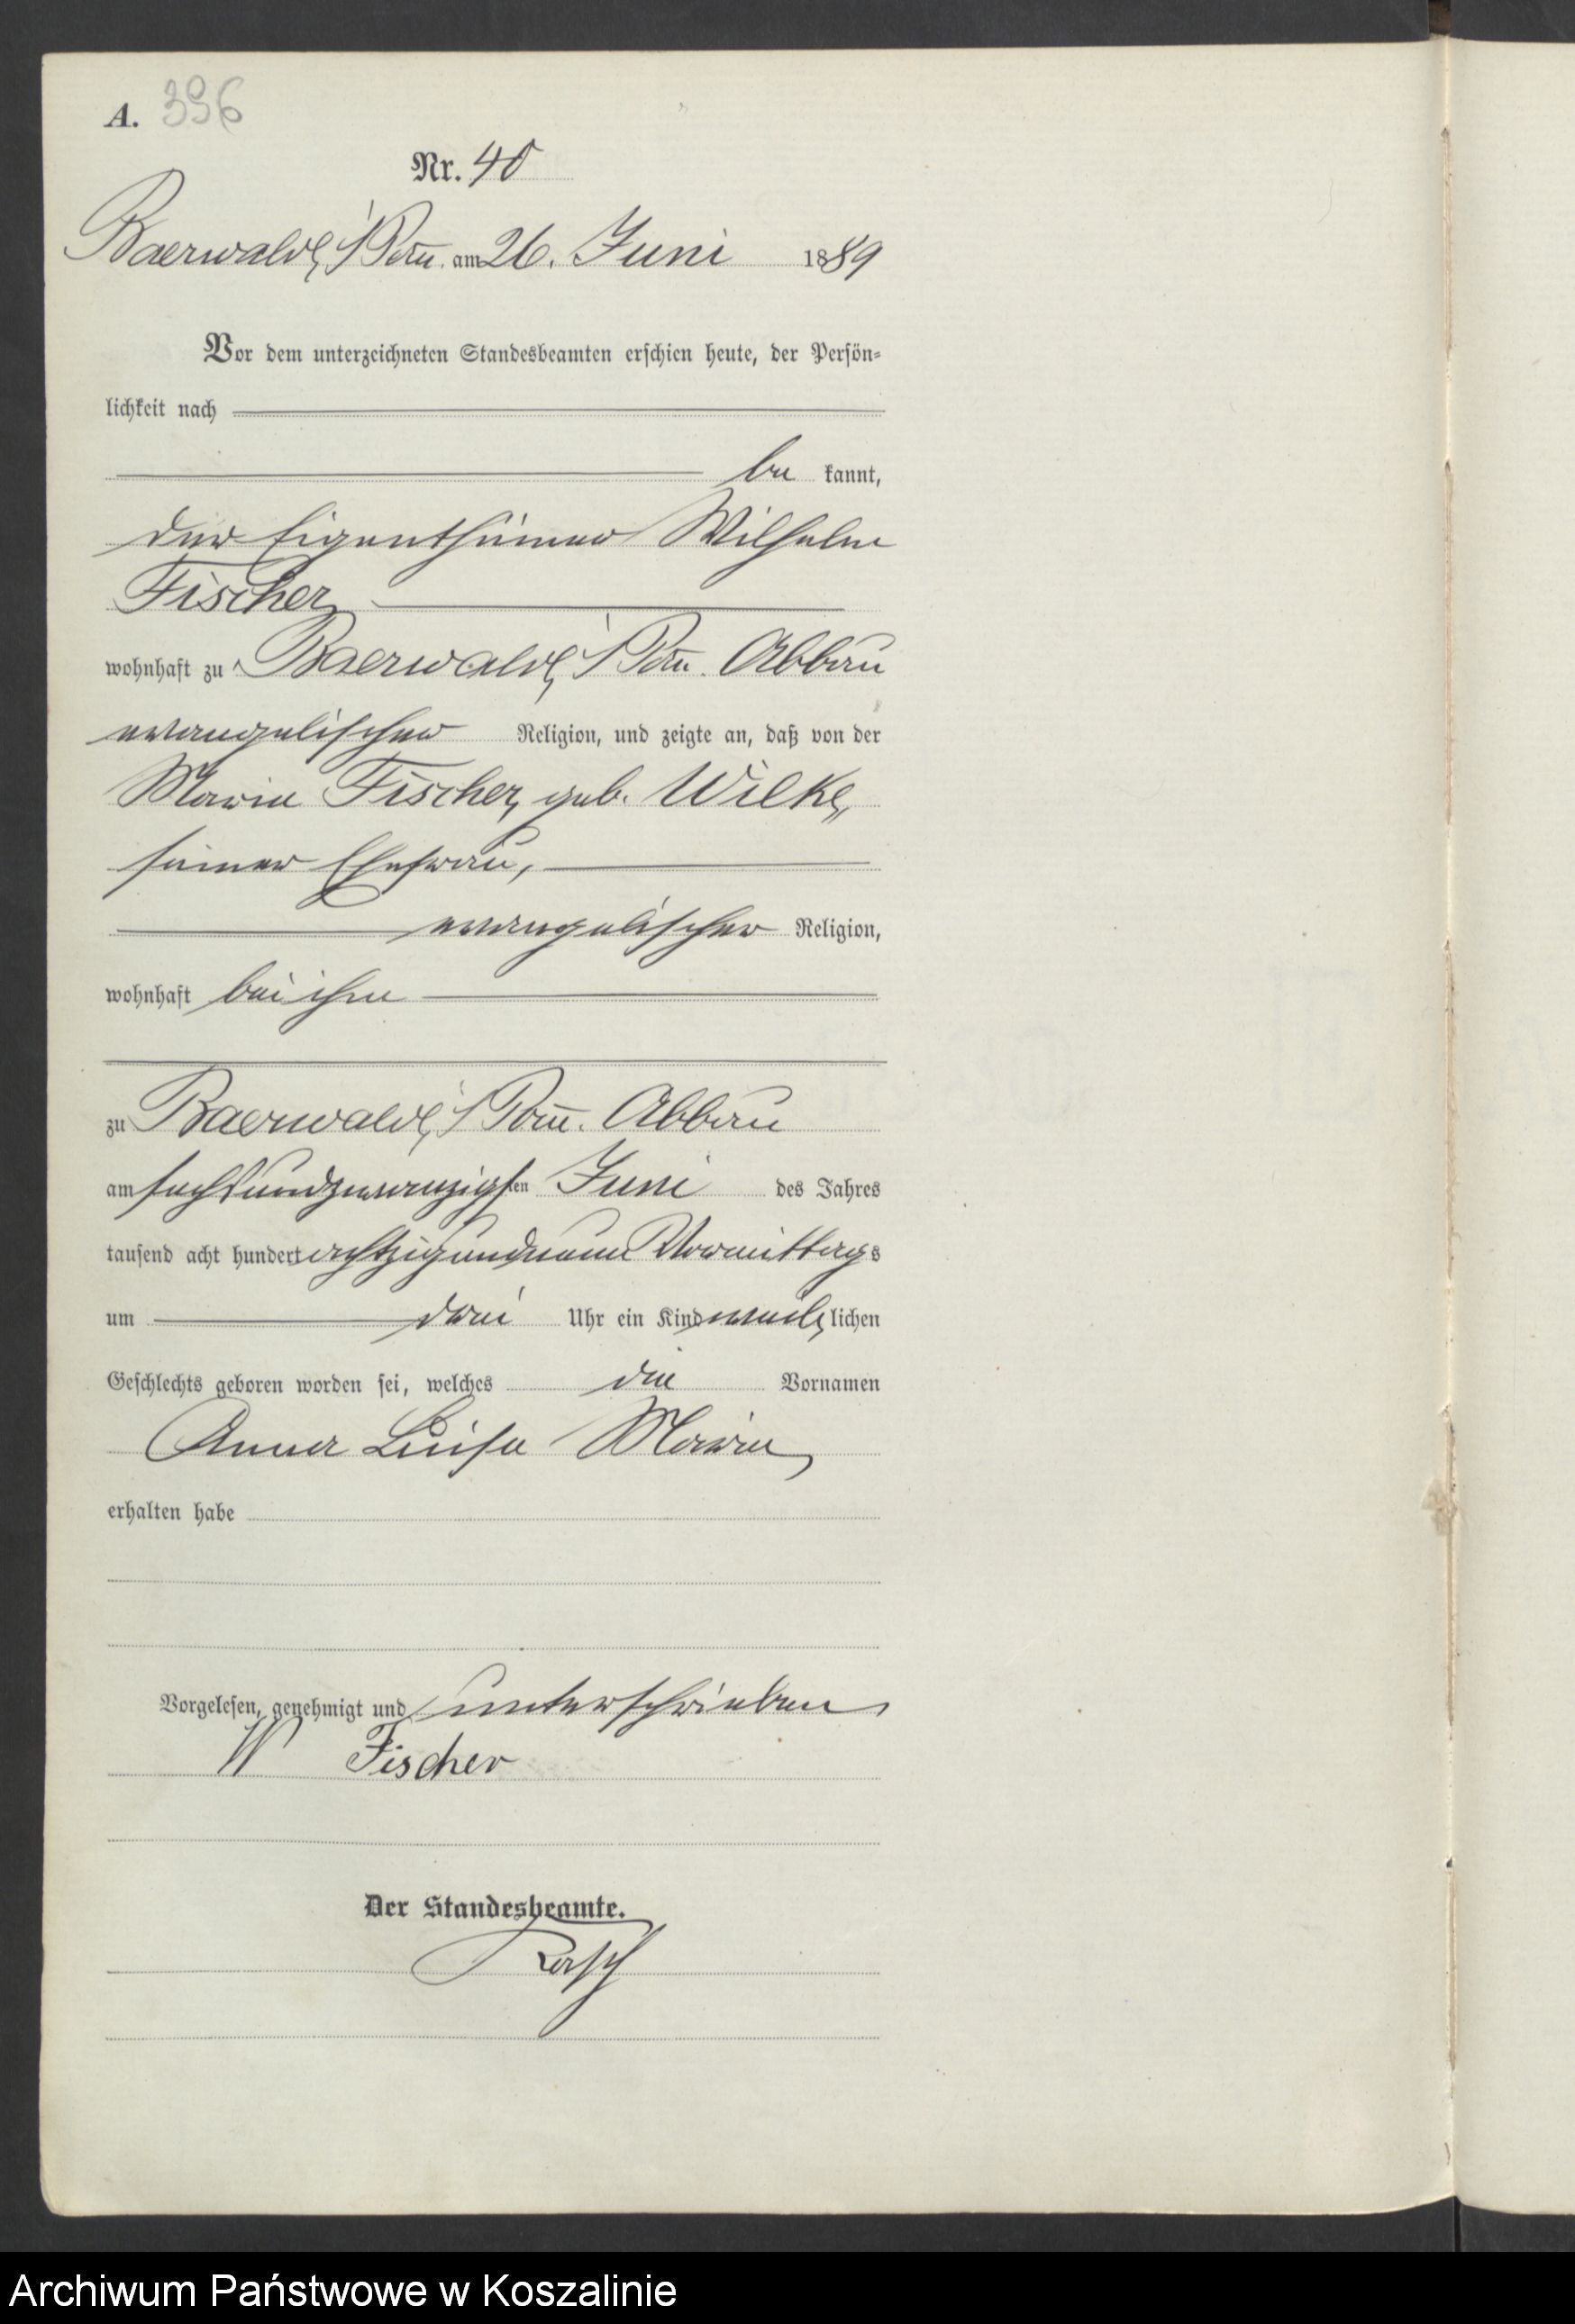 A. 396
Nr. 40
Baerwalde i/Pom. am 26. Juni 1889
Vor dem unterzeichneten Standesbeamten erschien heute, der Persön-
lichkeit nach
be kannt,
der Eigenthümer Wilhelm
Fischer
wohnhaft zu Baerwalde i/Pom. Abbau
evangelischer Religion, und zeigte an, daß von der
Marie Fischer, geb. Wilke,
seiner Ehefrau,
evangelischer Religion,
wohnhaft bei ihm
zu Baerwalde i/Pom. Abbau
am sechsundzwanzigsten Juni des Jahres
tausend acht hundert achtzigundneun Vormittags
um drei Uhr ein Kind weiblichen
Geschlechts geboren worden sei, welches die Vornamen
Anna Luise Marie
erhalten habe
Vorgelesen, genehmigt und unterschrieben
W Fischer
Der Standesbeamte.
Archiwum Państwowe w Koszalinie